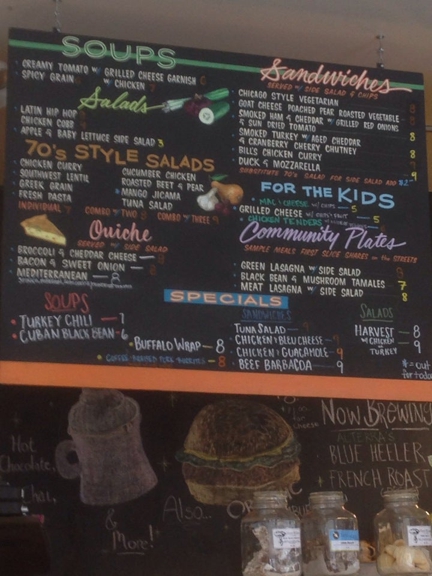 SOUPS
CREAMY TOMATO W/ GRILLED CHEESE GARNISH 6
SPICY GRAIN
W/ CHICKEN 7
Salads
LATIN HIP HOP
CHICKEN COBB
APPLE & BABY LETTUCE SIDE SALAD 3
70'S STYLE SALADS
CHICKEN CURRY
SOUTHWEST LENTIL
GREEK GRAIN
FRESH PASTA
CUCUMBER CHICKEN
ROASTED BEET & PEAR
MANGO JICAMA
TUNA SALAD
INDIVIDUAL
COMBO W/ TWO
COMBO W/ THREE
Quiche
SERVED W/ SIDE SALAD
BROCCOLI & CHEDDAR CHEESE
BACON & SWEET ONION
MEDITERRANEAN
Sandwiches
SERVED W/ SIDE SALAD & CHIPS
CHICAGO STYLE VEGETARIAN 8
GOAT CHEESE POACHED PEAR ROASTED VEGETABLE 8
SMOKED HAM & CHEDDAR W/ GRILLED RED ONIONS
& SUN DRIED TOMATO 8
SMOKED TURKEY W/ AGED CHEDDAR
& CRANBERRY CHERRY CHUTNEY 8
BILL'S CHICKEN CURRY 8
DUCK & MOZZARELLA 9
SUBSTITUTE 70'S SALAD FOR SIDE SALAD ADD $2
FOR THE KIDS
MAC & CHEESE W/ CHIPS 5
GRILLED CHEESE W/ FRUIT 5
CHICKEN TENDERS
Community Plates
SAMPLE MENU'S
GREEN LASAGNA W/ SIDE SALAD
BLACK BEAN & MUSHROOM TAMALES 7
MEAT LASAGNA W/ SIDE SALAD 8
SPECIALS
SOUPS
TURKEY CHILI 7
CUBAN BLACK BEAN 6
BUFFALO WRAP 8
SANDWICHES
TUNA SALAD
CHICKEN & BLEU CHEESE 9
CHICKEN & GUACAMOLE 9
BEEF BARBACOA 9
SALADS
HARVEST 8
W/ CHICKEN 9
TURKEY
= out
for today
Hot
Chocolate,
Chai,
& More!
Also...
NOW BREWING
ALTERRA'S
BLUE HEELER
+ FRENCH ROAST